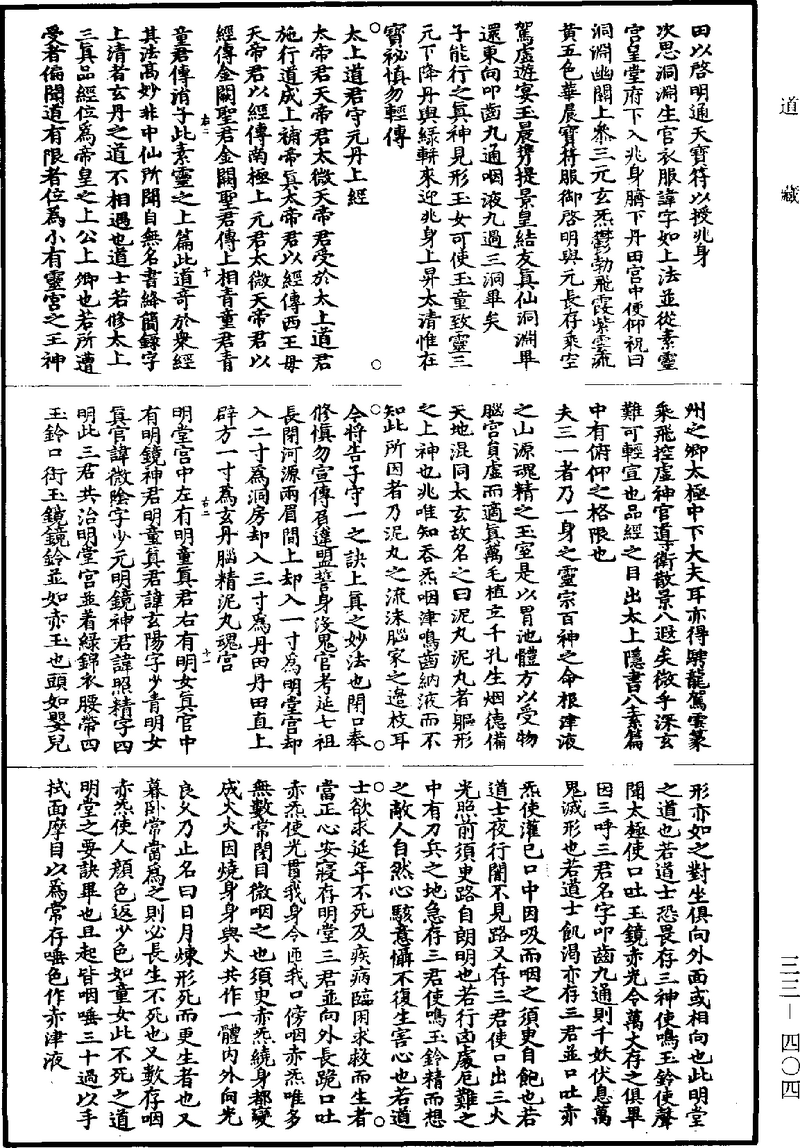 道藏
三三—四〇四
田以啓明通天寶符以授兆身
次思洞淵生官衣服諱字如上法並從素靈
宮皇堂府下入兆身臍下丹田宮中便仰祝曰
洞淵幽關上參三元玄炁鬱勃飛霞紫雲流
黃五色華晨寶符服御啓明與元長存乘空
駕虛遊宴玉晨攜提景皇結友真仙洞淵畢
還東向叩齒九通咽液九過三洞畢矣
子能行之真神見形玉女可使玉童致靈三
元下降丹輿綠軿來迎兆身上昇太清惟在
寶祕慎勿輕傳
太上道君守元丹上經
太帝君天帝君太微天帝君受於太上道君
施行道成上補帝真太帝君以經傳西王母
天帝君以經傳南極上元君太微天帝君以
經傳金闕聖君金闕聖君傳上相青童君青
右二
十
童君傳涓子此素靈之上篇此道奇於衆經
其法高妙非中仙所聞自無名書絳簡錄字
上清者玄丹之道不相遇也道士若修太上
三真品經位爲帝皇之上公上卿也若所遭
受者偏聞道有限者位爲小有靈宮之王神
州之鄉太極中下大夫耳亦得騁龍駕雲篆
乘飛控虛神官導衛散景八遐矣微乎深玄
難可輕宣也品經之目出太上隱書八素篇
中有俯仰之格限也
夫三一者乃一身之靈宗百神之命根津液
之山源魂精之玉室是以胃池體方以受物
腦宮員虛而適真萬毛植立千孔生烟德備
天地混同太玄故名之曰泥丸泥丸者軀形
之上神也兆唯知吞炁咽津鳴齒納液而不
知此所因者乃泥丸之流沫腦家之邊枝耳
今將告子守一之訣上真之妙法也閉口奉
修慎勿宣傳負違盟誓身沒鬼官考延七祖
長閉河源兩眉間上却入一寸爲明堂宮却
入二寸爲洞房却入三寸爲丹田丹田直上
辟方一寸爲玄丹腦精泥丸魂宮
右二
十一
明堂宮中左有明童真君右有明女真官中
有明鏡神君明童真君諱玄陽字少青明女
真官諱微陰字少元明鏡神君諱照精字四
明此三君共治明堂宮並着綠錦衣腰帶四
玉鈴口銜玉鏡鏡鈴並如赤玉也頭如嬰兒
形亦如之對坐俱向外面或相向也此明堂
之道也若道士恐畏存三神使鳴玉鈴使聲
聞太極使口吐玉鏡赤光令萬丈存之俱畢
因三呼三君名字叩齒九通則千妖伏息萬
鬼滅形也若道士飢渴亦存三君並口吐赤
炁使灌已口中因吸而咽之須臾自飽也若
道士夜行闇不見路又存三君使口出三火
光照前須臾路自朗明也若行凶處厄難之
中有刀兵之地急存三君使鳴玉鈴精而想
之敵人自然心駭意懾不復生害心也若道
士欲求延年不死及疾病臨困求救而生者
當正心安寢存明堂三君並向外長跪口吐
赤炁使光貫我身令匝我口傍咽赤炁唯多
無數常閉目微咽之也須臾赤炁繞身都變
成火火因燒身身與火共作一體內外向光
良久乃止名曰日月煉形死而更生者也又
暮卧常當爲之則必長生不死也又數存咽
赤炁使人顏色返少色如童女此不死之道
明堂之要訣畢也且起皆咽唾三十過以手
拭面摩目以爲常存唾色作赤津液